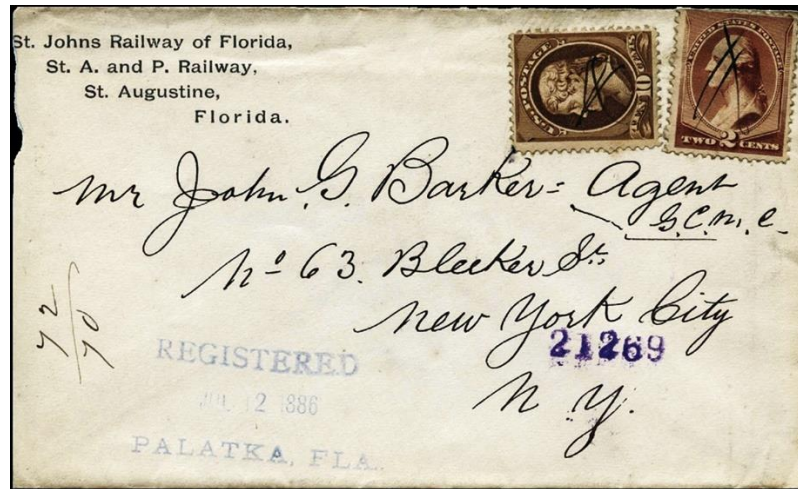 St. Johns Railway of Florida,
St. A. and P. Railway,
St. Augustine,
Florida.
U.S. POSTAGE
10 CENTS
UNITED STATES POSTAGE
TWO 2 CENTS
Mr John G. Barker = Agent
G.C.M.C.
No 63. Bleeker St.
New York City
21269
N Y.
72
70
REGISTERED
JUL 12 1886
PALATKA, FLA.